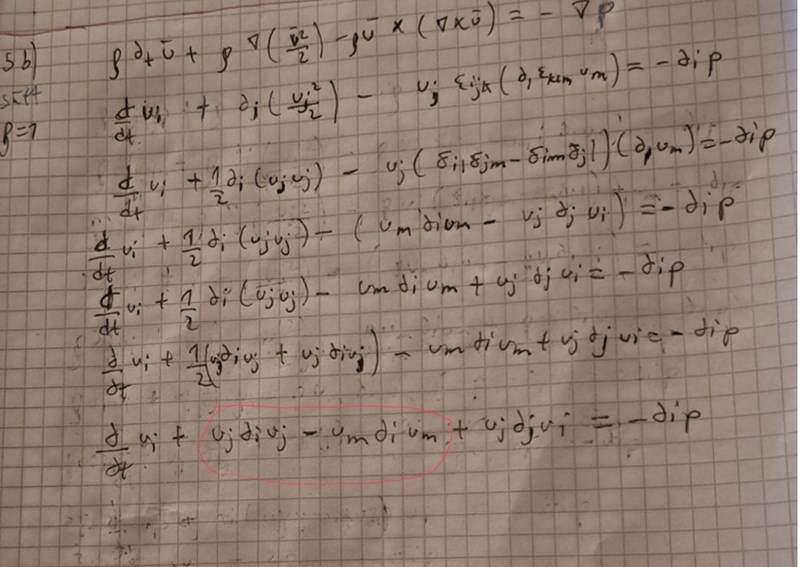 5b) ρ ∂_t ū + ρ ∇(ū²/2) - ρū × (∇×ū) = - ∇p
sätt ∂/∂t u_i + ∂_i (u_j²/2) - u_j ε_ijk (∂_l ε_klm u_m) = -∂_i p
ρ=1
∂/∂t u_i + 1/2 ∂_i (u_j u_j) - u_j (δ_il δ_jm - δ_im δ_jl) (∂_l u_m) = -∂_i p
∂/∂t u_i + 1/2 ∂_i (u_j u_j) - (u_m ∂_i u_m - u_j ∂_j u_i) = -∂_i p
∂/∂t u_i + 1/2 ∂_i (u_j u_j) - u_m ∂_i u_m + u_j ∂_j u_i = -∂_i p
∂/∂t u_i + 1/2 (u_j ∂_i u_j + u_j ∂_i u_j) - u_m ∂_i u_m + u_j ∂_j u_i = -∂_i p
∂/∂t u_i + u_j ∂_i u_j - u_m ∂_i u_m + u_j ∂_j u_i = -∂_i p